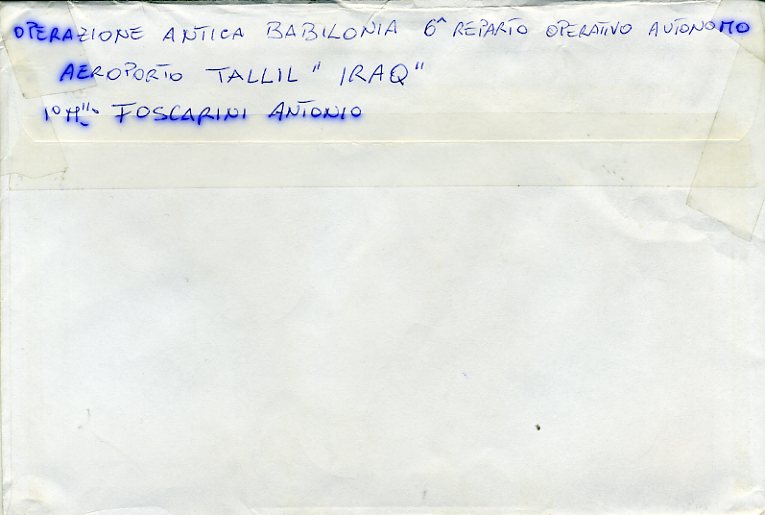 OPERAZIONE ANTICA BABILONIA 6^ REPARTO OPERATIVO AUTONOMO
AEROPORTO TALLIL "IRAQ"
1° M.llo FOSCARINI ANTONIO